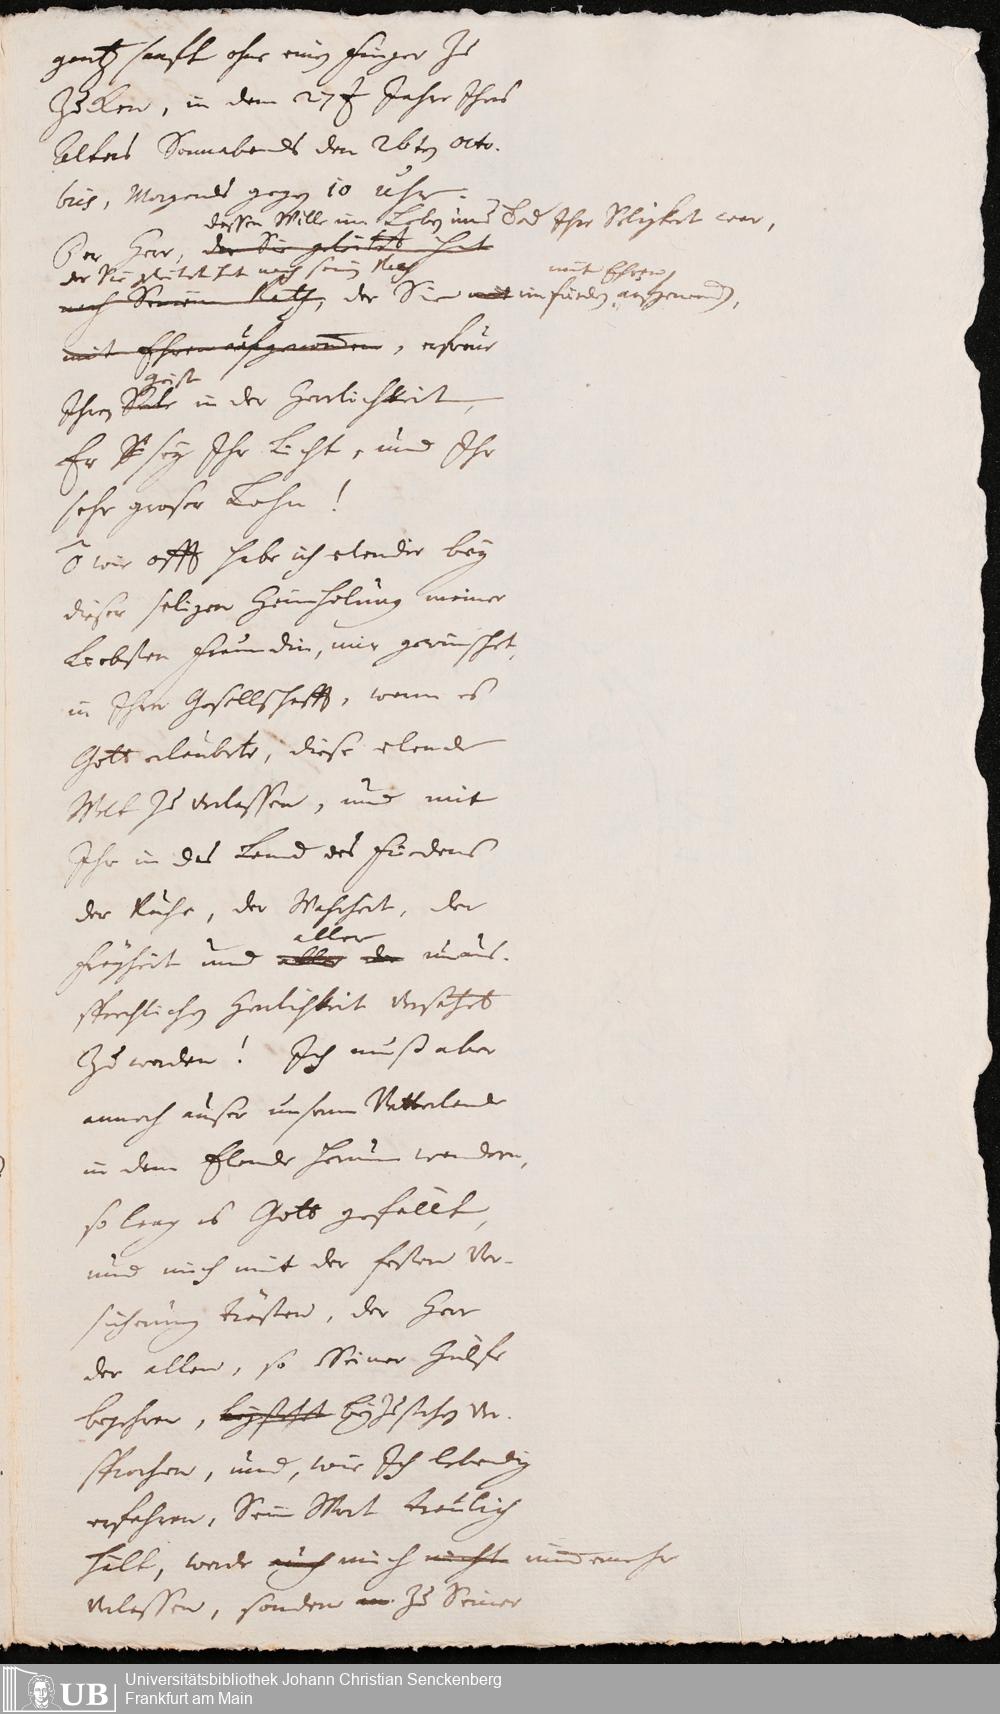 gantz sanfft ohne einen Finger zu
Zucken, in dem 27ₜ Jahre Ihres
Alters Sonnabends den 26ten Octo-
bris, Morgends gegen 10 Uhr.
dessen Wille im Leben und Tod Ihre Seligkeit war,
Der Herr, der Sie geleitet hat
der Sie geleitet hat nach seinem Rath
mit Ehren
nach Seinem Rath, der Sie mit im Frieden, aufgenommen,
mit Ehren aufgenommen, erfreue
Geist
Ihren Seele in der Herrlichkeit,
Er sey Ihr Licht, und Ihr
sehr grosser Lohn!
O wie offt habe ich elender bey
dieser seligen Heimholung meiner
Liebsten Freundin, mir gewünschet,
in Ihrer Gesellschafft, wenn es
Gott erlaubete, diese elende
Welt zu verlassen, und mit
Ihr in das Land des Friedens
der Ruhe, der Wahrheit, der
aller
Freyheit und aller der unaus-
sprechlichen Herrlichkeit versetzet
zu werden! Ich muß aber
annoch ausser unserm Vatterlande
in dem Elende herum wandern,
so lang es Gott gefällt,
und mich mit der festen Ver-
sicherung trösten, der Herr
der allen, so Seiner Hülfe
begehren, beyzustehen ver-
sprochen, und, wie Ich lebendig
erfahren, Sein Wort treulich
hält, werde auch mich nicht nimmermehr
verlassen, sondern zu Seiner
Universitätsbibliothek Johann Christian Senckenberg
Frankfurt am Main
UB